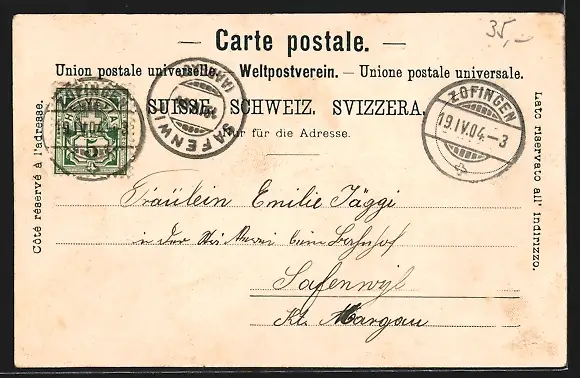 35,-
— Carte postale. —
Union postale universelle. — Weltpostverein. — Unione postale universale.
SUISSE. SCHWEIZ. SVIZZERA.
Nur für die Adresse.
Côté réservé à l'adresse.
Lato riservato all' indirizzo.
ZOFINGEN
19.IV.04.-3
ZOFINGEN
19.IV.04.
5
SAFENWIL
(AARGAU)
Fräulein Emilie Jäggi
in der beim Bahnhof
Safenwyl
Kt. Aargau